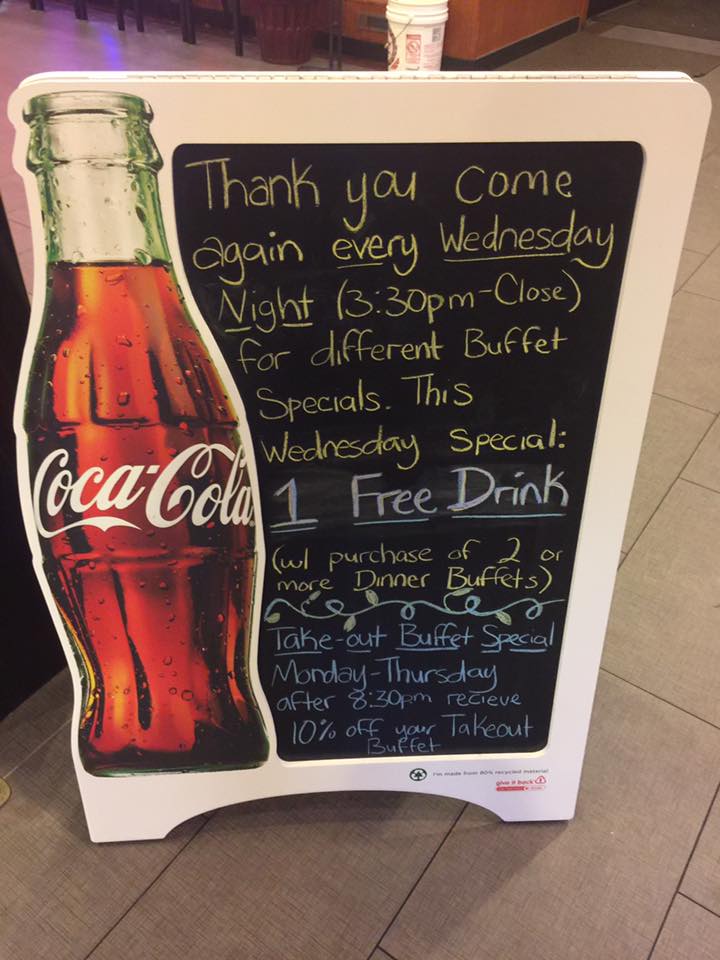 Thank you come
again every Wednesday
Night (3:30pm-Close)
for different Buffet
Specials. This
Wednesday Special:
1 Free Drink
(w/ purchase of 2 or
more Dinner Buffets)
Take-out Buffet Special
Monday-Thursday
after 8:30pm recieve
10% off your Takeout
Buffet
Coca-Cola
I'm made from 80% recycled material
give it back